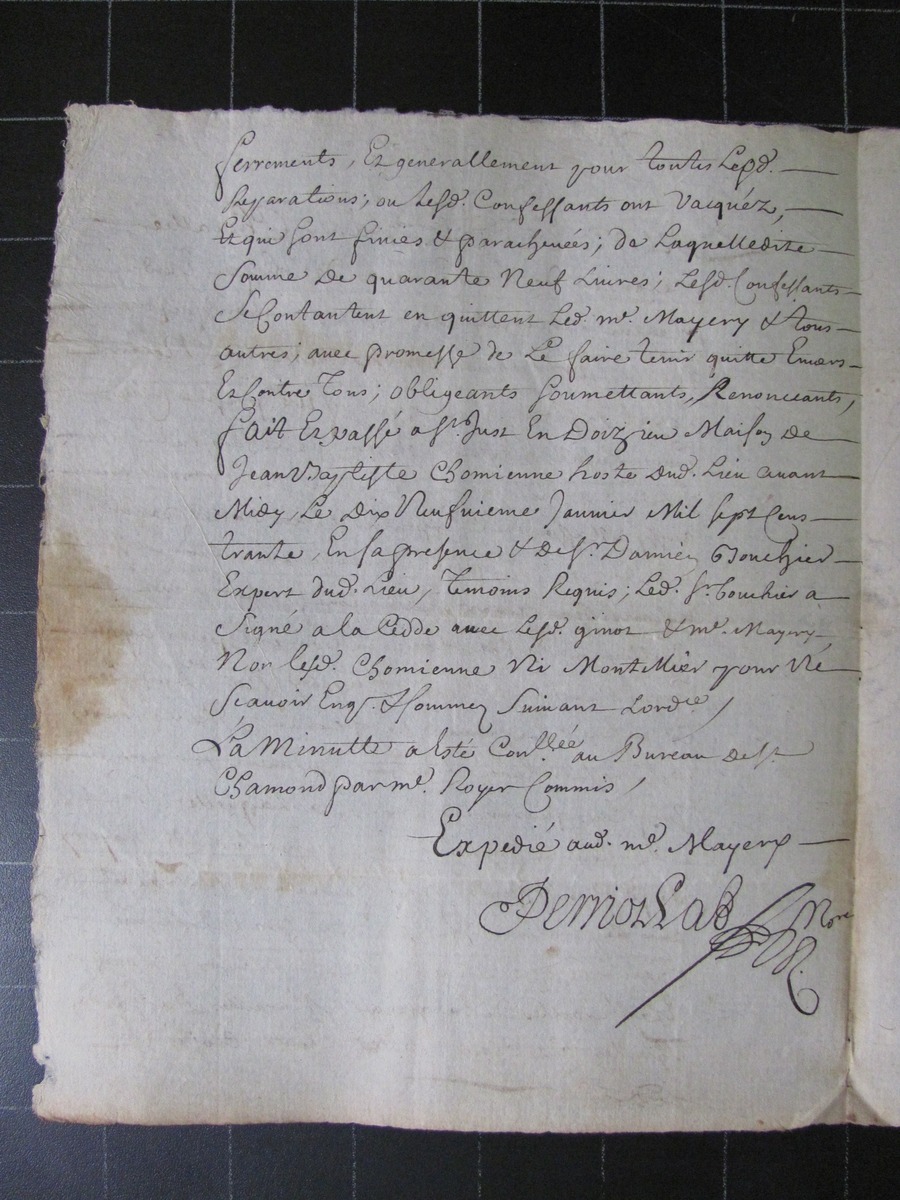 ferrements, Et generallement pour touttes Lesd. —
Reparations; ou Lesd. Confessants ont Vacquéz, —
Et qui sont finies & parachevées; de Laquelledite —
Somme de quarante Neuf Livres; Lesd. Confessants —
Se Contantent en quittent Led. mr. Mayery & tous —
autres; avec promesse de Le faire tenir quitte Envers —
Et Contre Tous; obligeants soumettants, Renonceants,
fait Et passé a st. Just En Doizieu Maison de —
Jean Baptiste Chomienne hoste dud. Lieu avant —
Midy, Le Dix Neufvieme Janvier Mil sept Cens —
trante, En sa presence & de sr. Damien Bouchier —
Expert dud. Lieu, Temoins Requis; Led. sr. bouchier a
Signé a la Cedde avec Lesd. ginot & mr. Mayery —
Non lesd. Chomienne Ni Montellier pour Ne —
Scavoir Enqs. & sommez Suivant Lordce /
La Minutte a Esté Conllée au Bureau de st.
Chamond par mr. Royer Commis /
Expedié aud. mr. Mayery —
Nore